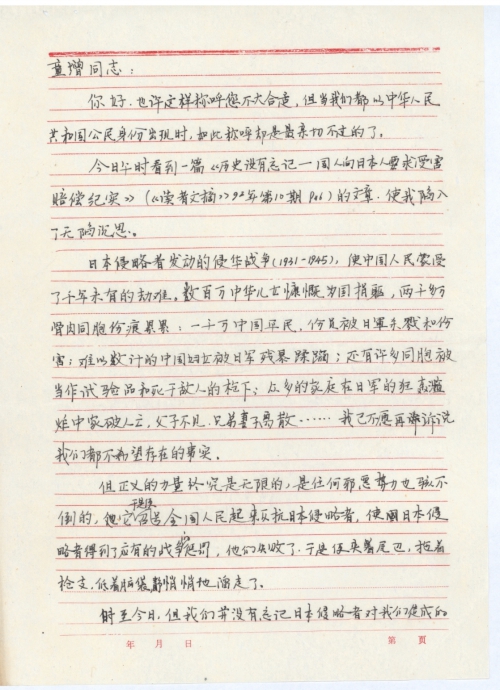 童增同志：
你好．也许这样称呼您不大合适，但当我们都以中华人民
共和国公民身份出现时，如此称呼却是最亲切不过的了。
今日午时看到一篇《历史没有忘记—国人向日本人要求受害
赔偿纪实》（《读者文摘》92年第10期 P06）的文章．使我陷入
了无限沉思。
日本侵略者发动的侵华战争（1931-1945），使中国人民蒙受
了千年未有的劫难。数百万中华儿女慷慨为国捐躯，两千多万
骨肉同胞伤痕累累：一千万中国平民，伤员被日军杀戮和伤
害；难以数计的中国妇女被日军残暴蹂躏；还有许多同胞被
当作试验品和死于敌人的枪下；众多的家庭在日军的狂轰滥
炸中家破人亡，父子不见．兄弟妻子离散……我已不愿再诉说
我们都不希望存在的事实。
但正义的力量终究是无限的，是任何邪恶势力也驱不
倒的，于是便号召全国人民起来反抗日本侵略者，使日本侵
略者得到了应有的惩罚，他们失败了．于是便夹着尾巴，拖着
枪支，低着脑袋静悄悄地溜走了。
时至今日，但我们并没有忘记日本侵略者对我们造成的
年 月 日
第 页